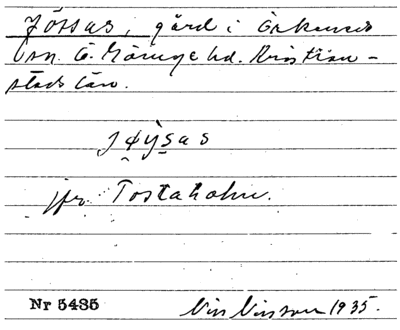 Jössas, gård i Örkeneds
sn. Ö. Göinge hd. Kristian-
stads län.
jø̭ỳs̱as
jfr. Tostaholm.
Nr 5485 Nils Nilsson 1935.